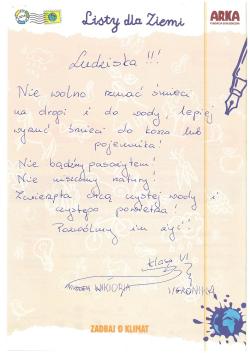 Listy dla Ziemi
ARKA
Ludziska !!!
Nie wolno rzucać śmieci
na drogi i do wody, lepiej
wyrzuć śmieci do kosza lub
pojemnika!
Nie bądźmy pasożytem!
Nie niszczmy natury!
Zwierzęta chcą czystej wody i
czystego powietrza!
Pozwólmy im żyć!
klasa VI
WIKTORIA
WERONIKA
ZADBAJ O KLIMAT